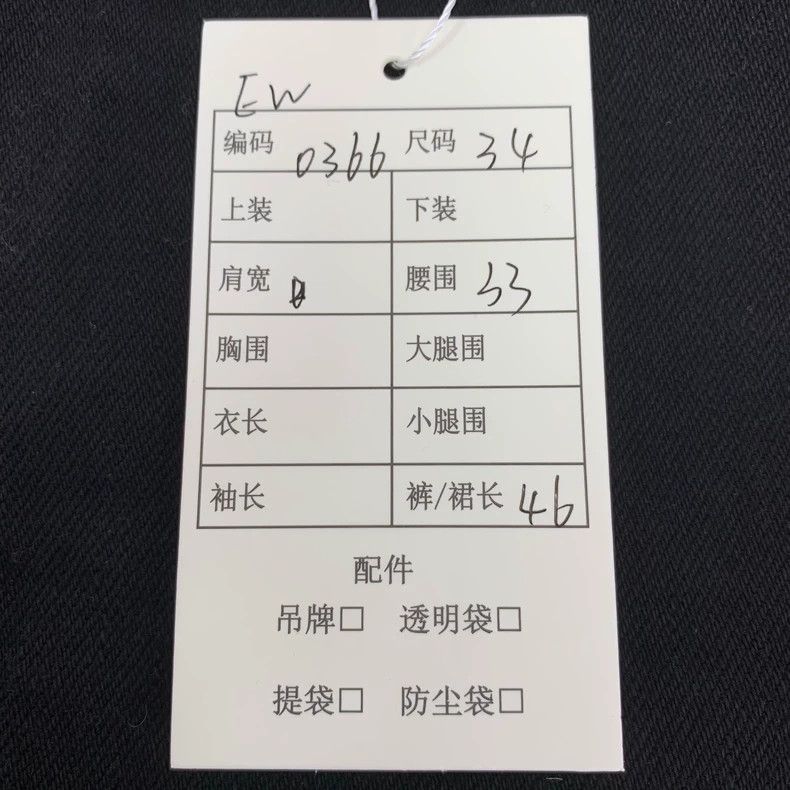 EW
编码 0366 尺码 34
上装 下装
肩宽 腰围 33
胸围 大腿围
衣长 小腿围
袖长 裤/裙长 46
配件
吊牌□ 透明袋□
提袋□ 防尘袋□